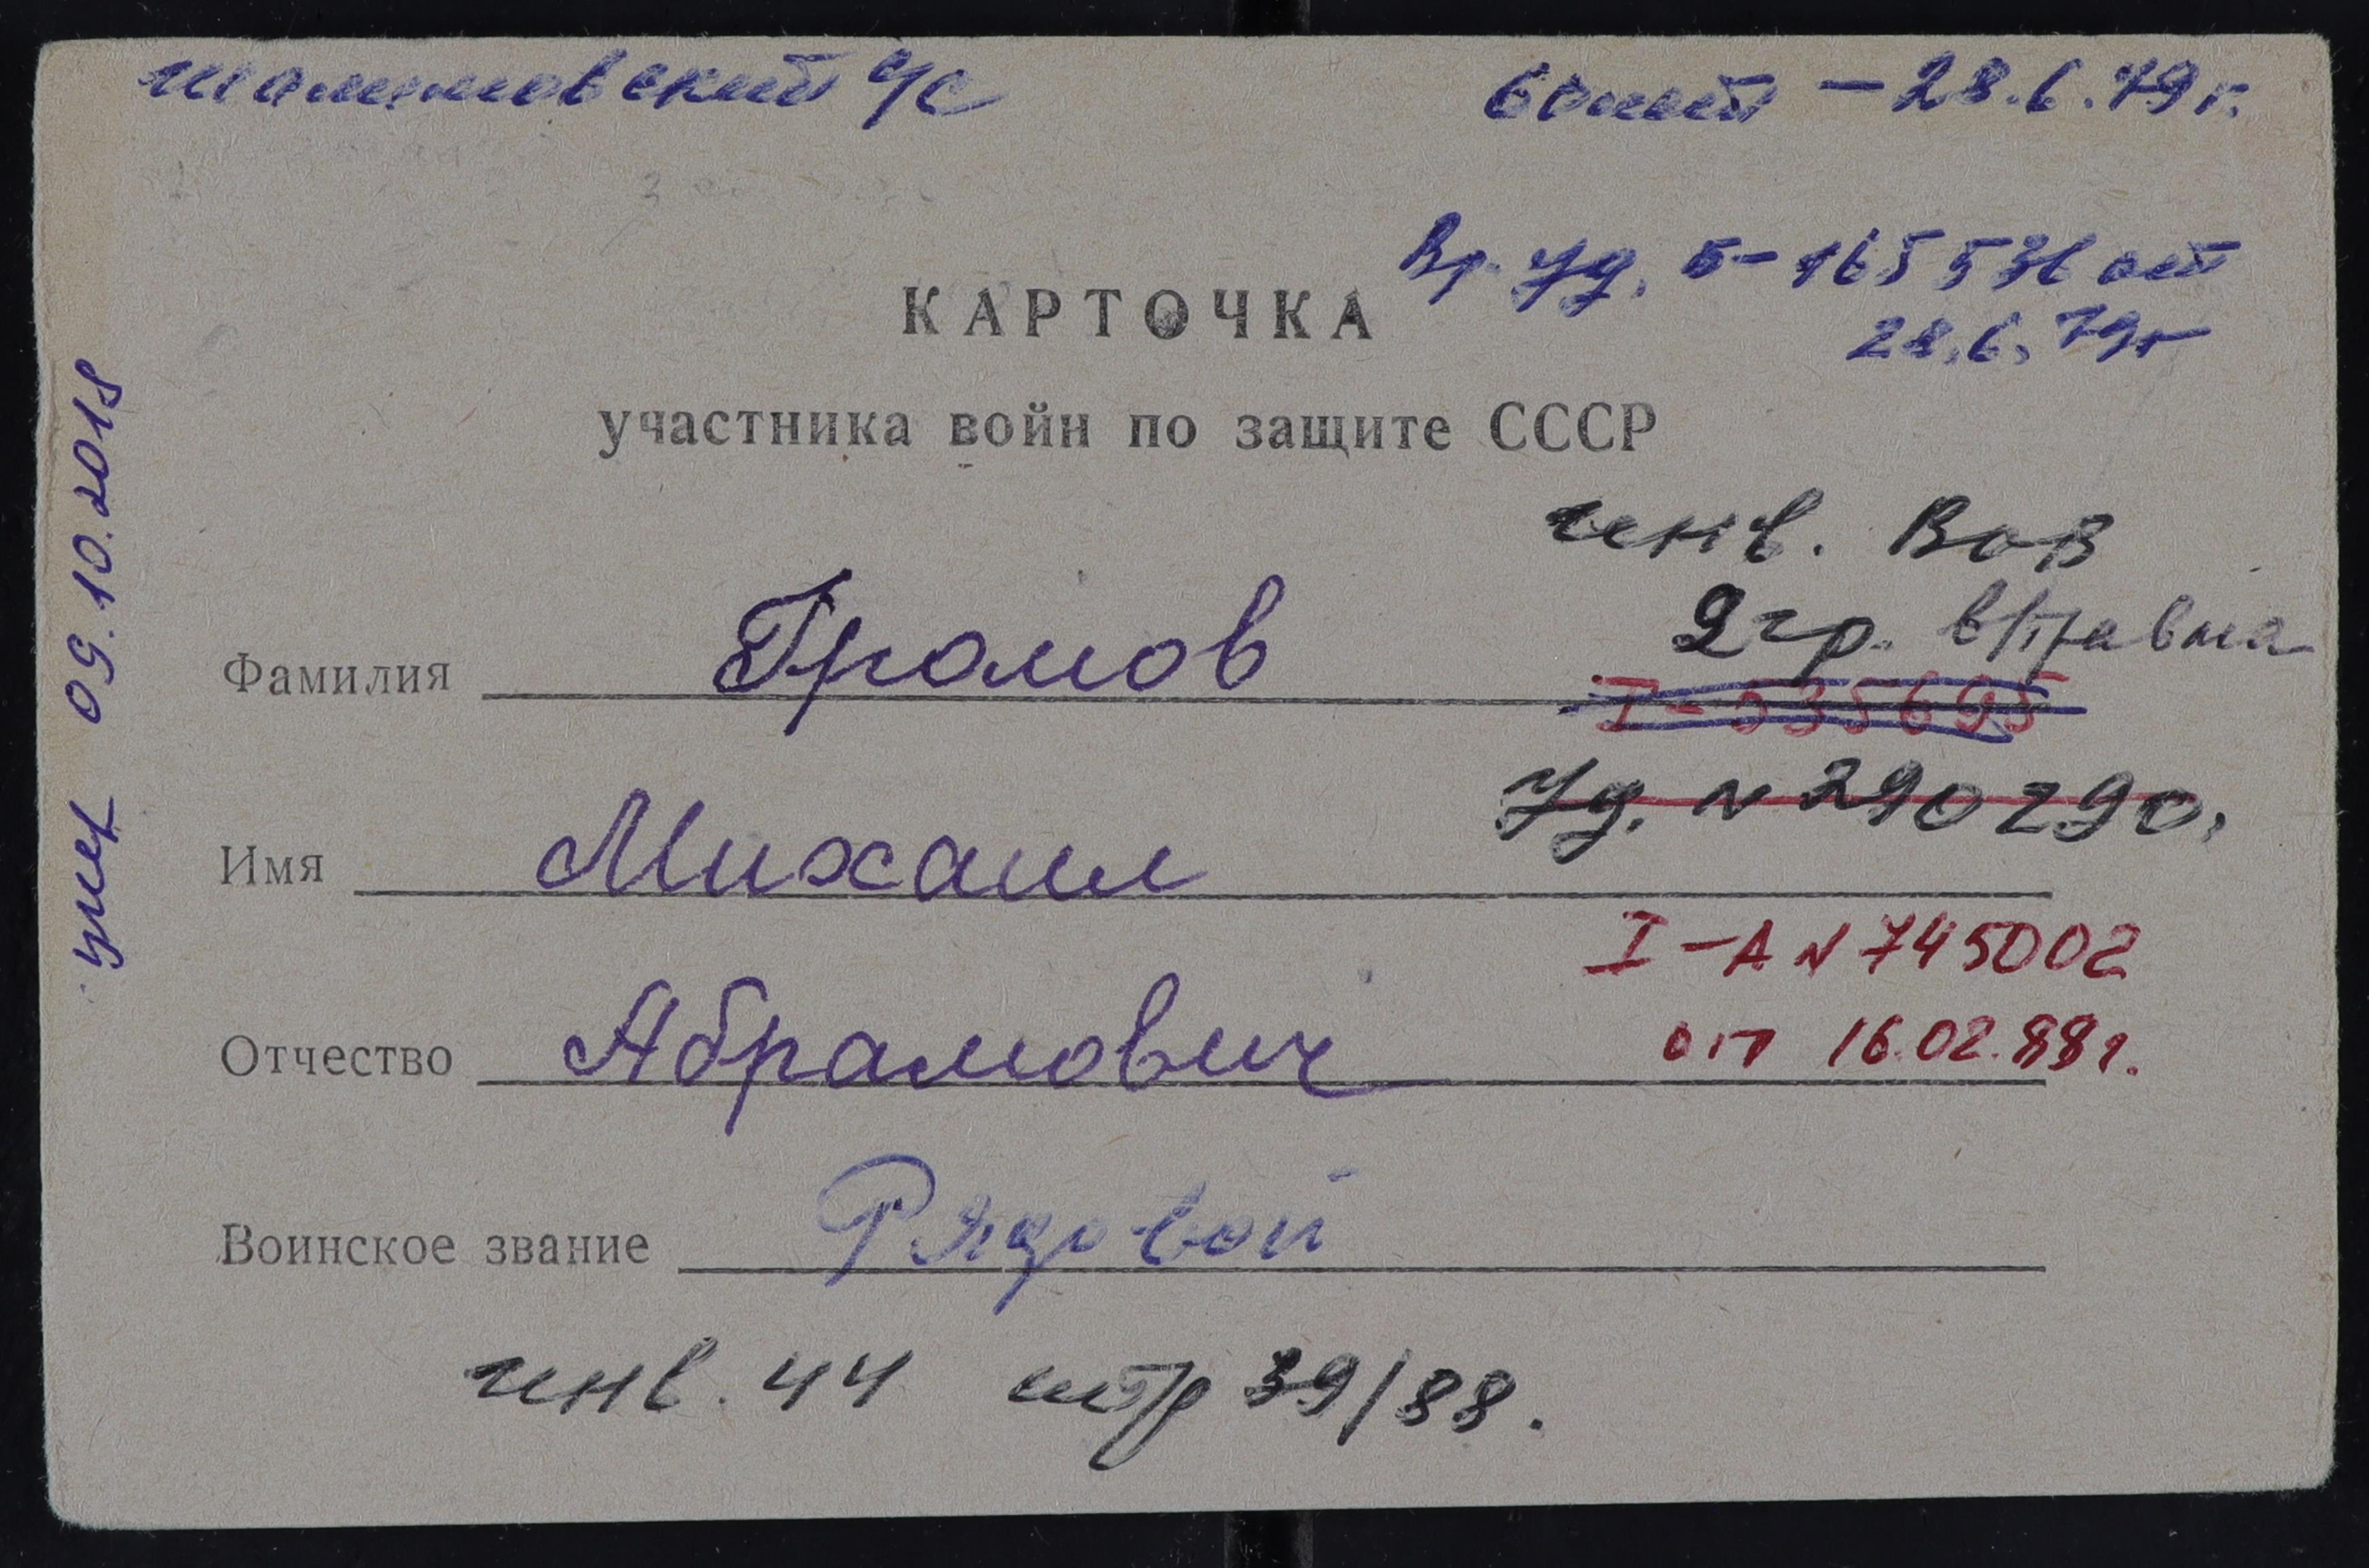 60 лет – 28.6.79 г.
Вр. Уд. Б- 165536 от
28.6.79г
КАРТОЧКА
участника войн по защите СССР
умер 09.10.2018
инв. ВОВ
2 гр. в/травма
Фамилия Громов
I - 535695
Уд. N 290290.
Имя Михаил
I – А N 745002
от 16.02.88г.
Отчество Абрамович
Воинское звание Рядовой
инв. 44 стр 39/88.